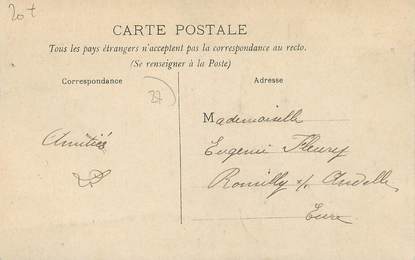 20+
CARTE POSTALE
Tous les pays étrangers n'acceptent pas la correspondance au recto.
(Se renseigner à la Poste)
Correspondance
Adresse
Amitiés
Mademoiselle
Eugenie Fleury
Romilly s/ Andelle
Eure